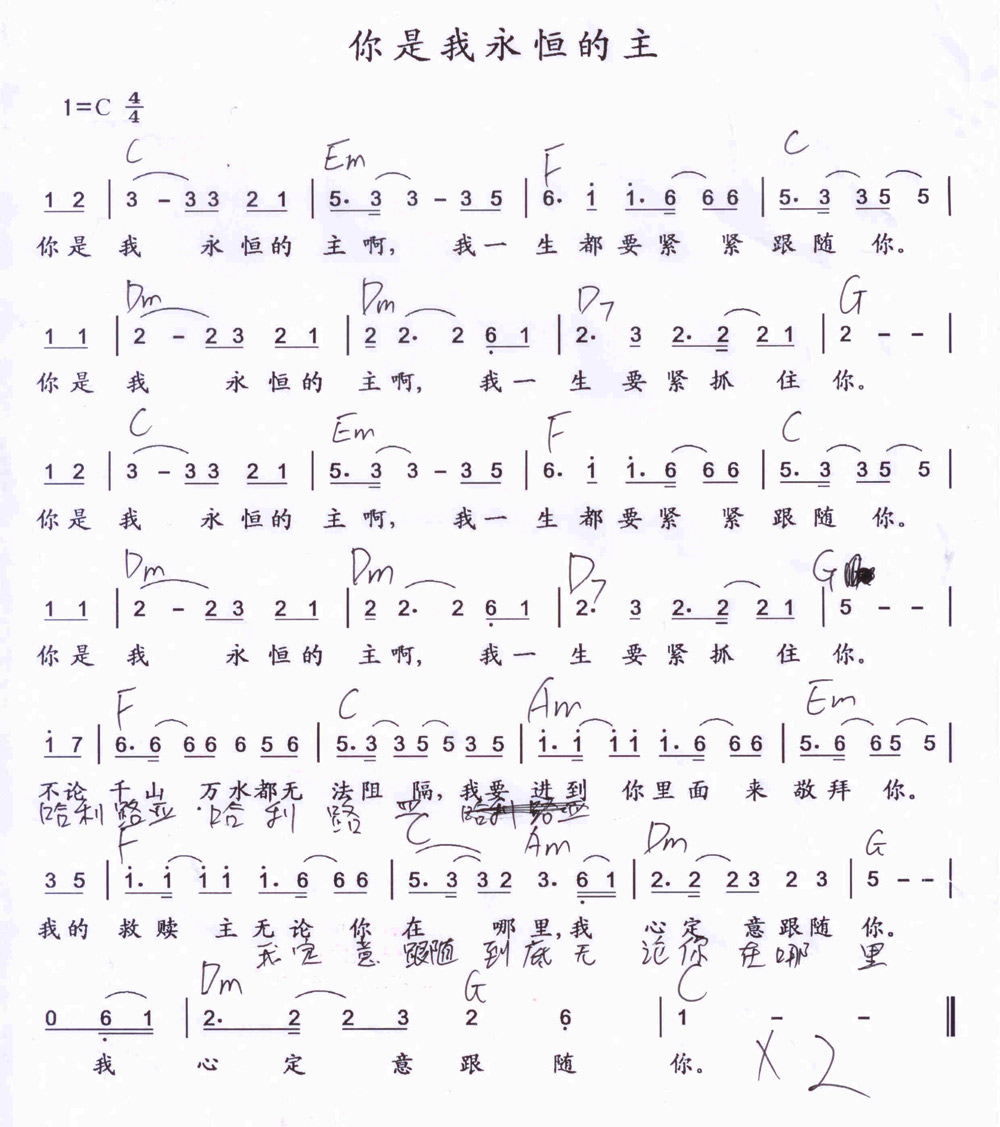 你是我永恒的主
1=C 4/4
C Em F C
1 2 | 3 – 3 3 2 1 | 5. 3 3 – 3 5 | 6. i i. 6 6 6 6 | 5. 3 3 5 5 5 |
你是 我 永恒的 主啊, 我一 生都要紧 紧跟随 你。
Dm Dm D7 G
1 1 | 2 – 2 3 2 1 | 2 2. 2 6̣ 1 | 2. 3 2. 2 2 2 1 | 2 – – |
你是 我 永恒的 主啊, 我一 生要紧抓 住你。
C Em F C
1 2 | 3 – 3 3 2 1 | 5. 3 3 – 3 5 | 6. i i. 6 6 6 6 | 5. 3 3 5 5 5 |
你是 我 永恒的 主啊, 我一 生都要紧 紧跟随 你。
Dm Dm D7 G
1 1 | 2 – 2 3 2 1 | 2 2. 2 6̣ 1 | 2. 3 2. 2 2 2 1 | 5 – – |
你是 我 永恒的 主啊, 我一 生要紧抓 住你。
F C Am Em
i 7 | 6. 6 6 6 6 5 6 | 5. 3 3 5 5 3 5 | i. i i i i. 6 6 6 6 | 5. 6 6 5 5 5 |
不论 千山 万水都无 法阻 隔,我要 进到 你里面 来 敬拜 你。
哈利 路亚 哈利 路
F C Am Dm G
3 5 | i. i i i i. 6 6 6 6 | 5. 3 3 2 3. 6̣ 1 | 2. 2 2 3 2 3 | 5 – – |
我的 救赎 主无论 你在 哪里,我 心定 意跟随 你。
我定意 跟随 到底无 论你 在哪 里
Dm G C
0 6̣ 1 | 2. 2 2 3 2 6̣ | 1 – –
我 心 定 意 跟 随 你。 X 2